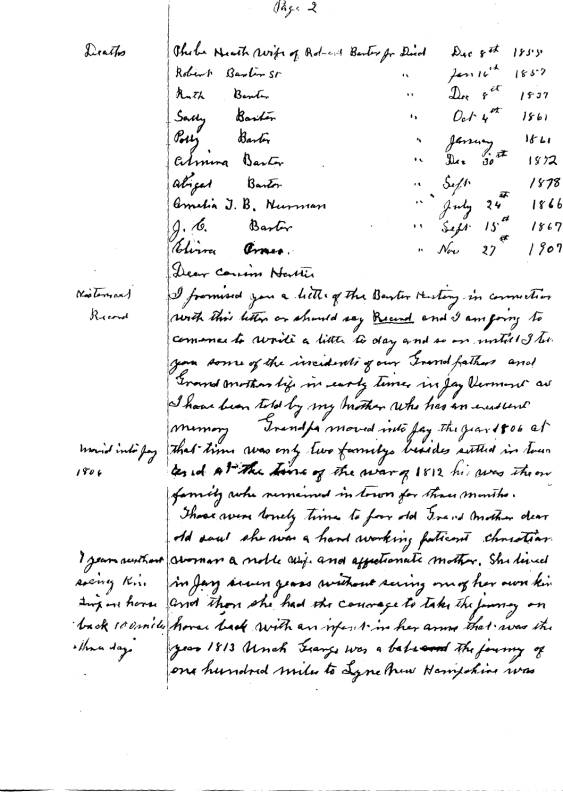 Page 2
Deaths Phebe Heath wife of Robert Baxter Jr Died Dec 8th 1855
Robert Baxter Sr " Jan 16th 1857
Ruth Baxter " Dec 8th 1837
Sally Baxter " Oct 4th 1861
Polly Baxter " January 1861
Almina Baxter " Dec 30th 1872
Abigal Baxter " Sept 1878
Amelia J. B. Hunman " July 24th 1866
J. C. Baxter " Sept 15th 1867
Elvira " Nov 27th 1907
Dear Cousin Hattie
I promised you a little of the Baxter History in connection
Record with this letter or should say Record and I am going to
comence to write a little to day and so on until I
you some of the incidents of our Grand fathers and
Grand mothers life in early times in Jay Vermont as
I have been told by my Mother who has an excellent
memory Grandpa moved into Jay the year 1806 at
Moved into Jay that time was only two familys besides settled in town
1806 and at the time of the war of 1812 his was the
family who remained in town for three months.
Those were lonely times to poor old Grand Mother dear
old soul she was a hard working patient christian
7 years without woman a noble wife and affectionate mother. She lived
seeing Kin in Jay seven years without seeing one of her own kin
Trip on horse and then she had the courage to take the journey on
back 100 miles horse back with an infant in her arms that was the
three days year 1813 Uncle George was a babe the journey of
one hundred miles to Lyme New Hampshire was